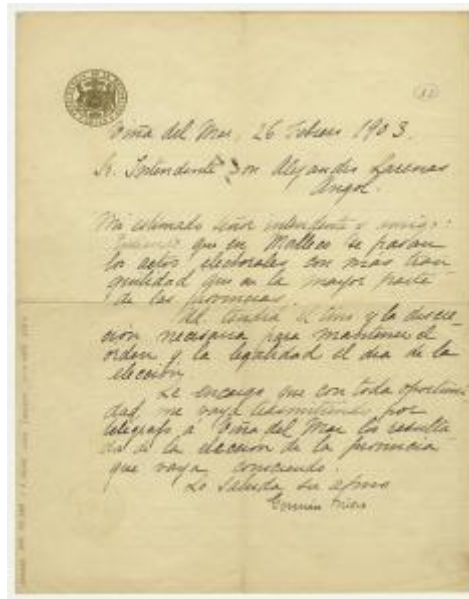 Viña del Mar, 26 Febrero 1903.
Sr. Intendente Don Alejandro Larenas
Angol.
Mi estimado señor intendente y amigo:
que en Malleco se pasan
los actos electorales con mas tran
quilidad que en la mayor parte
de las provincias.
Ud. tendrá el tino y la discre-
cion necesaria para mantener el
orden y la legalidad el dia de la
eleccion.
Le encargo que con toda oportuni
dad me vaya trasmitiendo por
telégrafo á Viña del Mar los resulta
dos de la eleccion de la provincia
que vaya conociendo.
Lo saluda su afmo
Germán Riesco